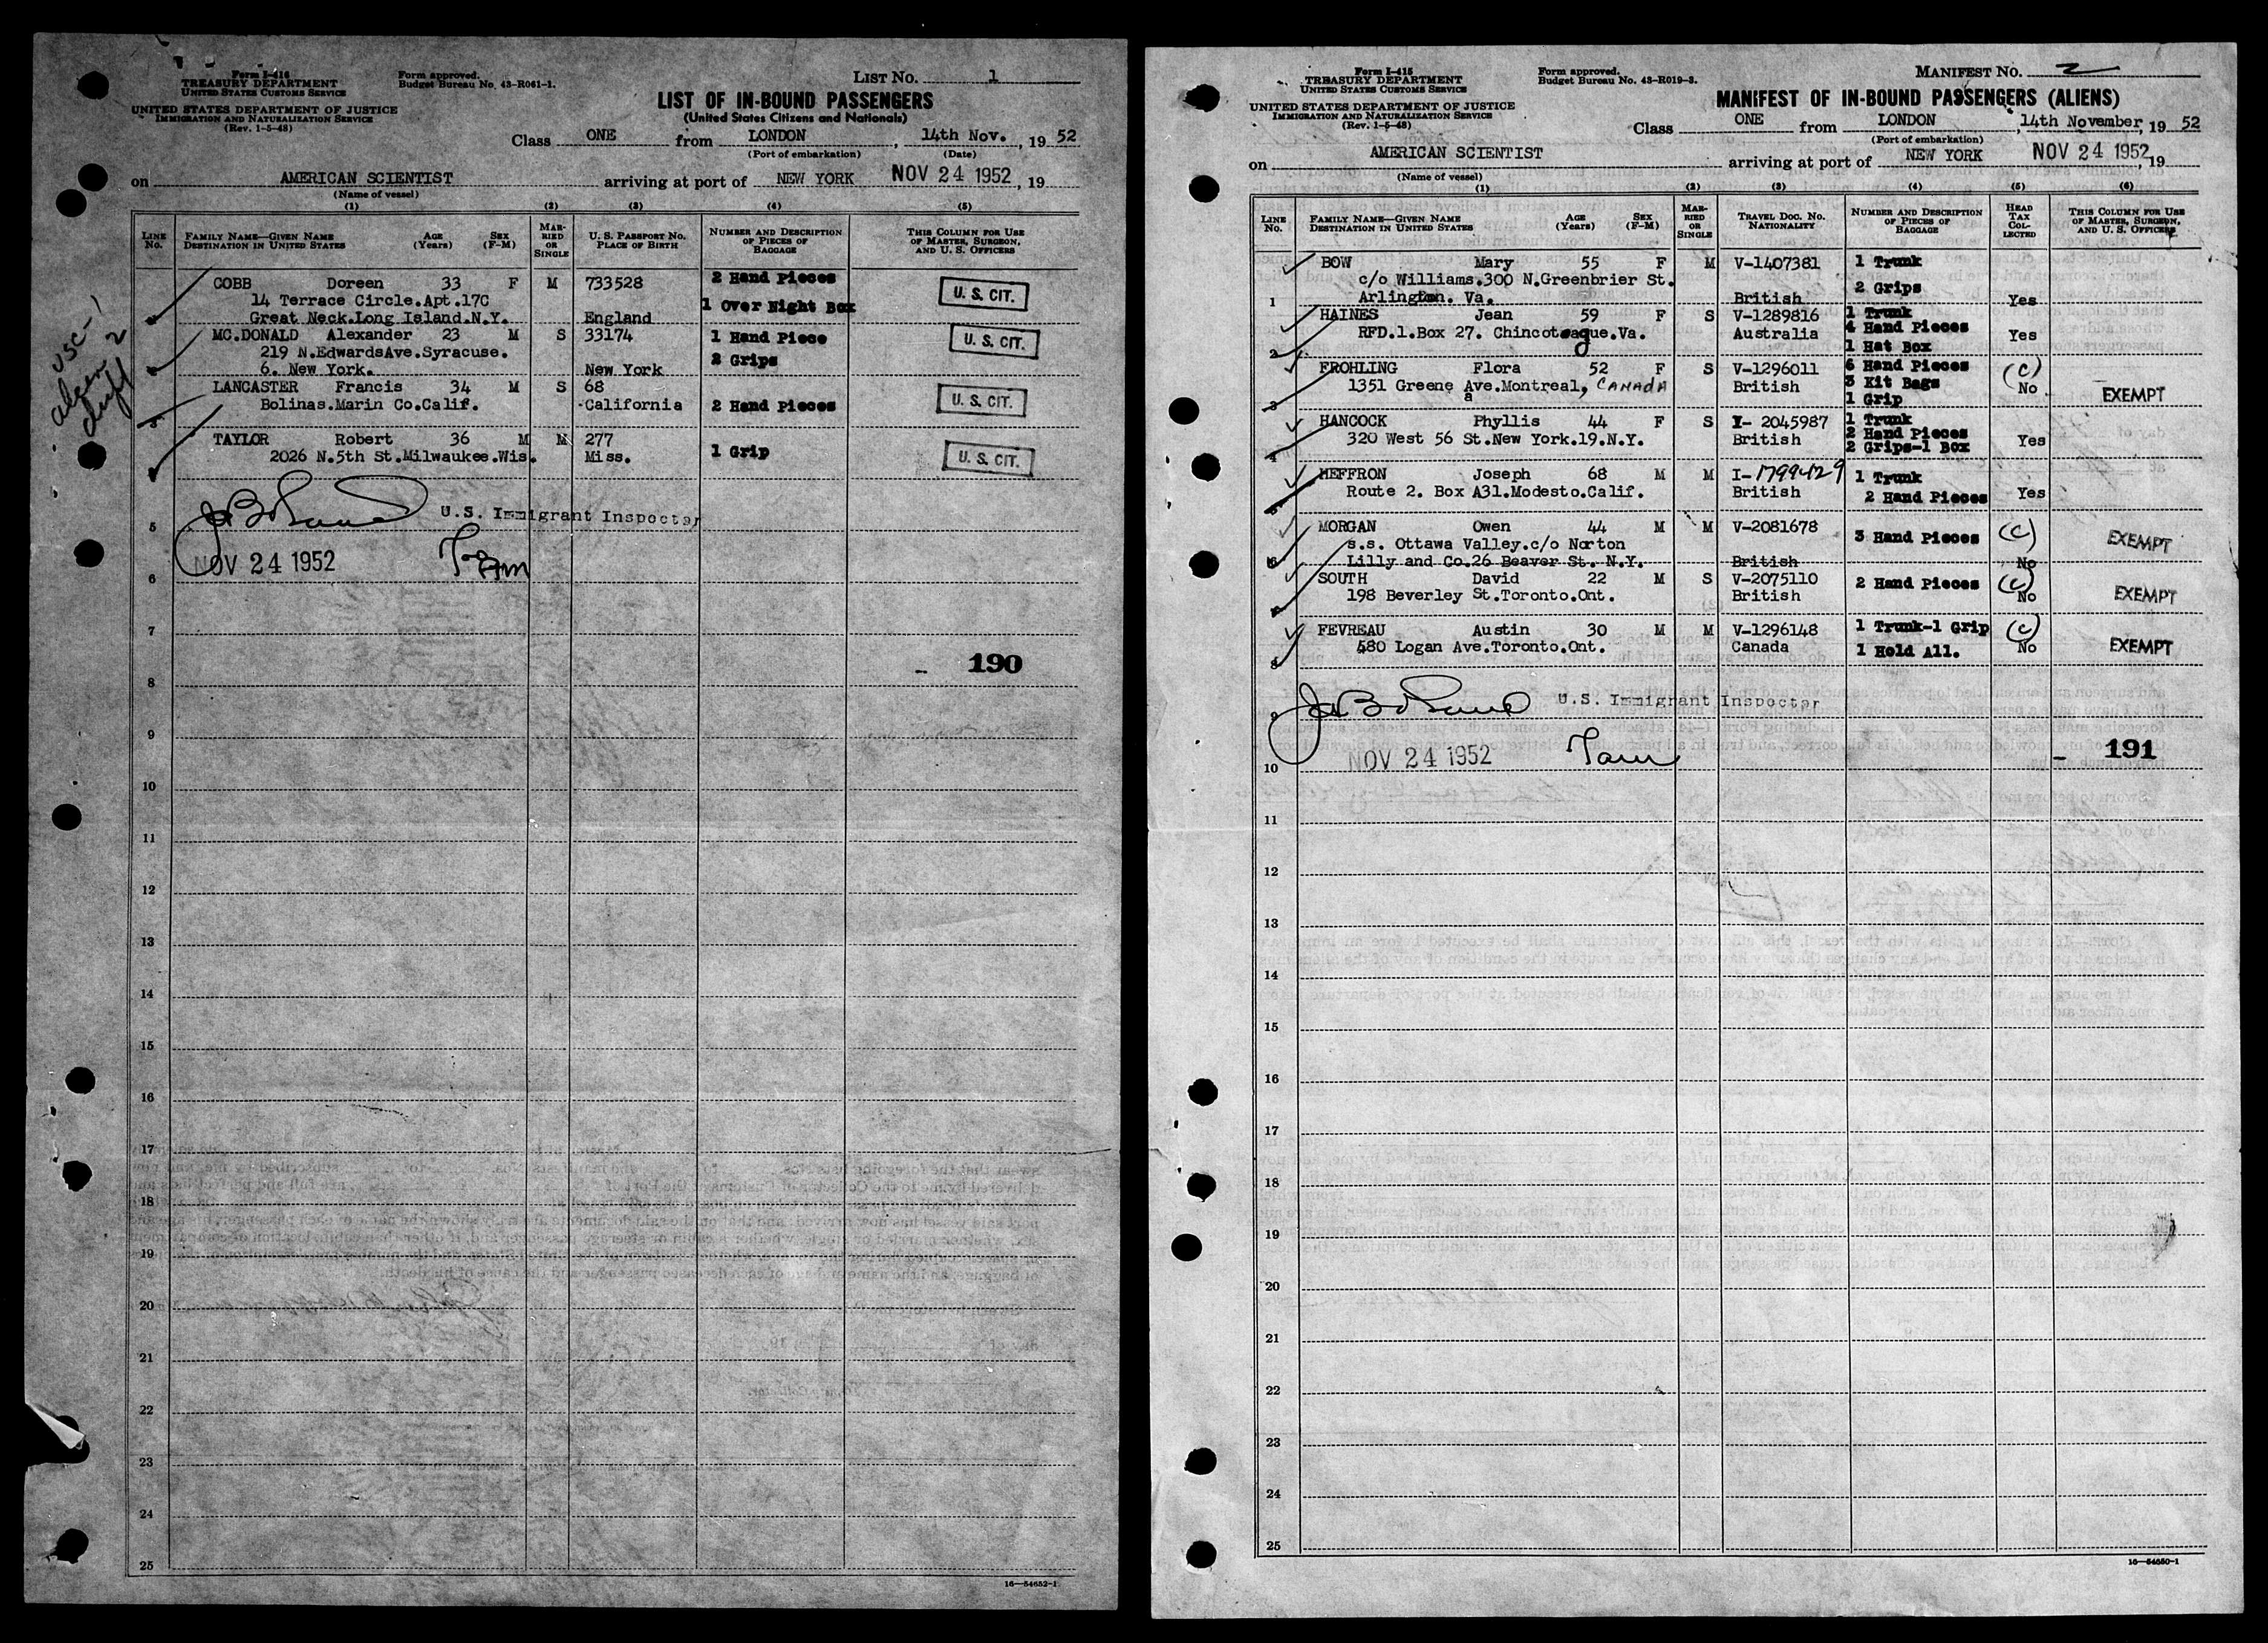 Form I-416
TREASURY DEPARTMENT
UNITED STATES CUSTOMS SERVICE
UNITED STATES DEPARTMENT OF JUSTICE
IMMIGRATION AND NATURALIZATION SERVICE
(Rev. 1-5-48)
Form approved.
Budget Bureau No. 43-R061-1.
LIST NO. 1
LIST OF IN-BOUND PASSENGERS
(United States Citizens and Nationals)
Class ONE from LONDON, 14th Nov., 19 52
(Port of embarkation) (Date)
on AMERICAN SCIENTIST arriving at port of NEW YORK NOV 24 1952, 19
(Name of vessel)
(1) (2) (3) (4) (5)
LINE No. FAMILY NAME—GIVEN NAME DESTINATION IN UNITED STATES AGE (Years) SEX (F-M) MARRIED OR SINGLE U. S. PASSPORT NO. PLACE OF BIRTH NUMBER AND DESCRIPTION OF PIECES OF BAGGAGE THIS COLUMN FOR USE OF MASTER, SURGEON, AND U. S. OFFICERS
COBB Doreen 33 F M 733528 2 Hand Pieces U. S. CIT.
14 Terrace Circle.Apt.17C 1 Over Night Box
Great Neck.Long Island.N.Y. England
MC.DONALD Alexander 23 M S 33174 1 Hand Piece U. S. CIT.
219 N.EdwardsAve.Syracuse. 2 Grips
6. New York. New York
LANCASTER Francis 34 M S 68 U. S. CIT.
Bolinas.Marin Co.Calif. California 2 Hand Pieces
TAYLOR Robert 36 M M 277 1 Grip U. S. CIT.
2026 N.5th St.Milwaukee.Wis. Miss.
usc-1
U.S. Immigrant Inspector
5
NOV 24 1952
6
7
- 190
8
9
10
11
12
13
14
15
16
17
18
19
20
21
22
23
24
25
16—54652-1
Form I-415
TREASURY DEPARTMENT
UNITED STATES CUSTOMS SERVICE
UNITED STATES DEPARTMENT OF JUSTICE
IMMIGRATION AND NATURALIZATION SERVICE
(Rev. 1-5-48)
Form approved.
Budget Bureau No. 43-R019-3.
MANIFEST NO. 2
MANIFEST OF IN-BOUND PASSENGERS (ALIENS)
Class ONE from LONDON, 14th November, 19 52
(Port of embarkation)
on AMERICAN SCIENTIST arriving at port of NEW YORK NOV 24 1952, 19
(Name of vessel)
(1) (2) (3) (4) (5) (6)
LINE No. FAMILY NAME—GIVEN NAME DESTINATION IN UNITED STATES AGE (Years) SEX (F-M) MARRIED OR SINGLE TRAVEL DOC. NO. NATIONALITY NUMBER AND DESCRIPTION OF PIECES OF BAGGAGE HEAD TAX COLLECTED THIS COLUMN FOR USE OF MASTER, SURGEON, AND U. S. OFFICERS
BOW Mary 55 F M V-1407381 1 Trunk
c/o Williams.300 N.Greenbrier St. 2 Grips
1 Arlington. Va. British Yes
HAINES Jean 59 F S V-1289816 1 Trunk
RFD.1.Box 27. Chincoteague.Va. Australia 4 Hand Pieces Yes
2 1 Hat Box
FROHLING Flora 52 F S V-1296011 6 Hand Pieces (C)
1351 Greene Ave.Montreal, CANADA British 3 Kit Bags No EXEMPT
3 1 Grip
HANCOCK Phyllis 44 F S I- 2045987 1 Trunk
320 West 56 St.New York.19.N.Y. British 2 Hand Pieces Yes
4 2 Grips-1 Box
HEFFRON Joseph 68 M M I-1799429 1 Trunk
Route 2. Box A31.Modesto.Calif. British 2 Hand Pieces Yes
MORGAN Owen 44 M M V-2081678 3 Hand Pieces (C) EXEMPT
s.s. Ottawa Valley.c/o Norton
Lilly and Co.26 Beaver St. N.Y. British No
SOUTH David 22 M S V-2075110 2 Hand Pieces (C)
198 Beverley St.Toronto.Ont. British No EXEMPT
FEVREAU Austin 30 M M V-1296148 1 Trunk-1 Grip (C)
580 Logan Ave.Toronto.Ont. Canada 1 Hold All. No EXEMPT
8
U.S. Immigrant Inspector
9
NOV 24 1952
- 191
10
11
12
13
14
15
16
17
18
19
20
21
22
23
24
25
16—54650-1